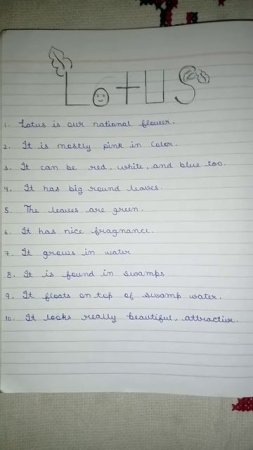 LOTUS
1. Lotus is our national flower.
2. It is mostly pink in color.
3. It can be red, white, and blue too.
4. It has big round leaves.
5. The leaves are green.
6. It has nice fragnance.
7. It grows in water
8. It is found in swamps
9. It floats on top of swamp water.
10. It looks really beautiful, attractive.